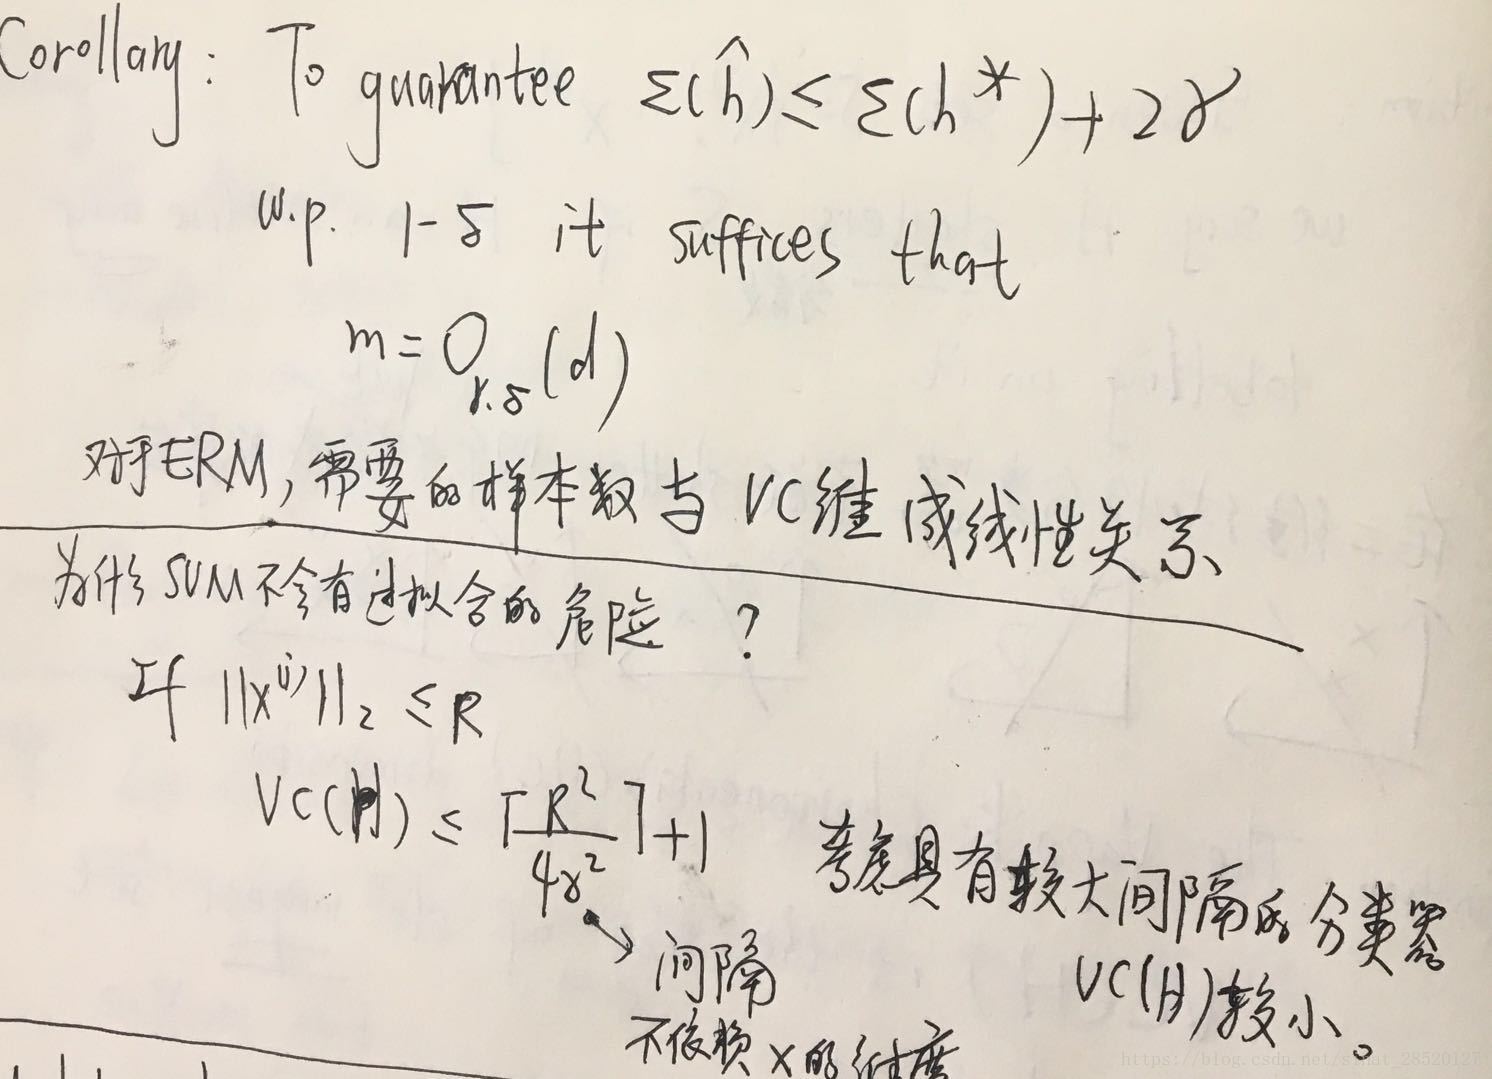 Corollary: To guarantee Σ(ĥ) ≤ Σ(h*) + 2γ
w.p. 1-δ it suffices that
m = O_{γ.δ}(d)
对于ERM, 需要的样本数与VC维成线性关系
为什么SVM不会有过拟合的危险?
If ||x^{(i)}||_2 ≤ R
VC(H) ≤ ⌈R^2/4γ^2⌉+1
考虑具有较大间隔的分类器
VC(H)较小。
间隔
不依赖x的维度